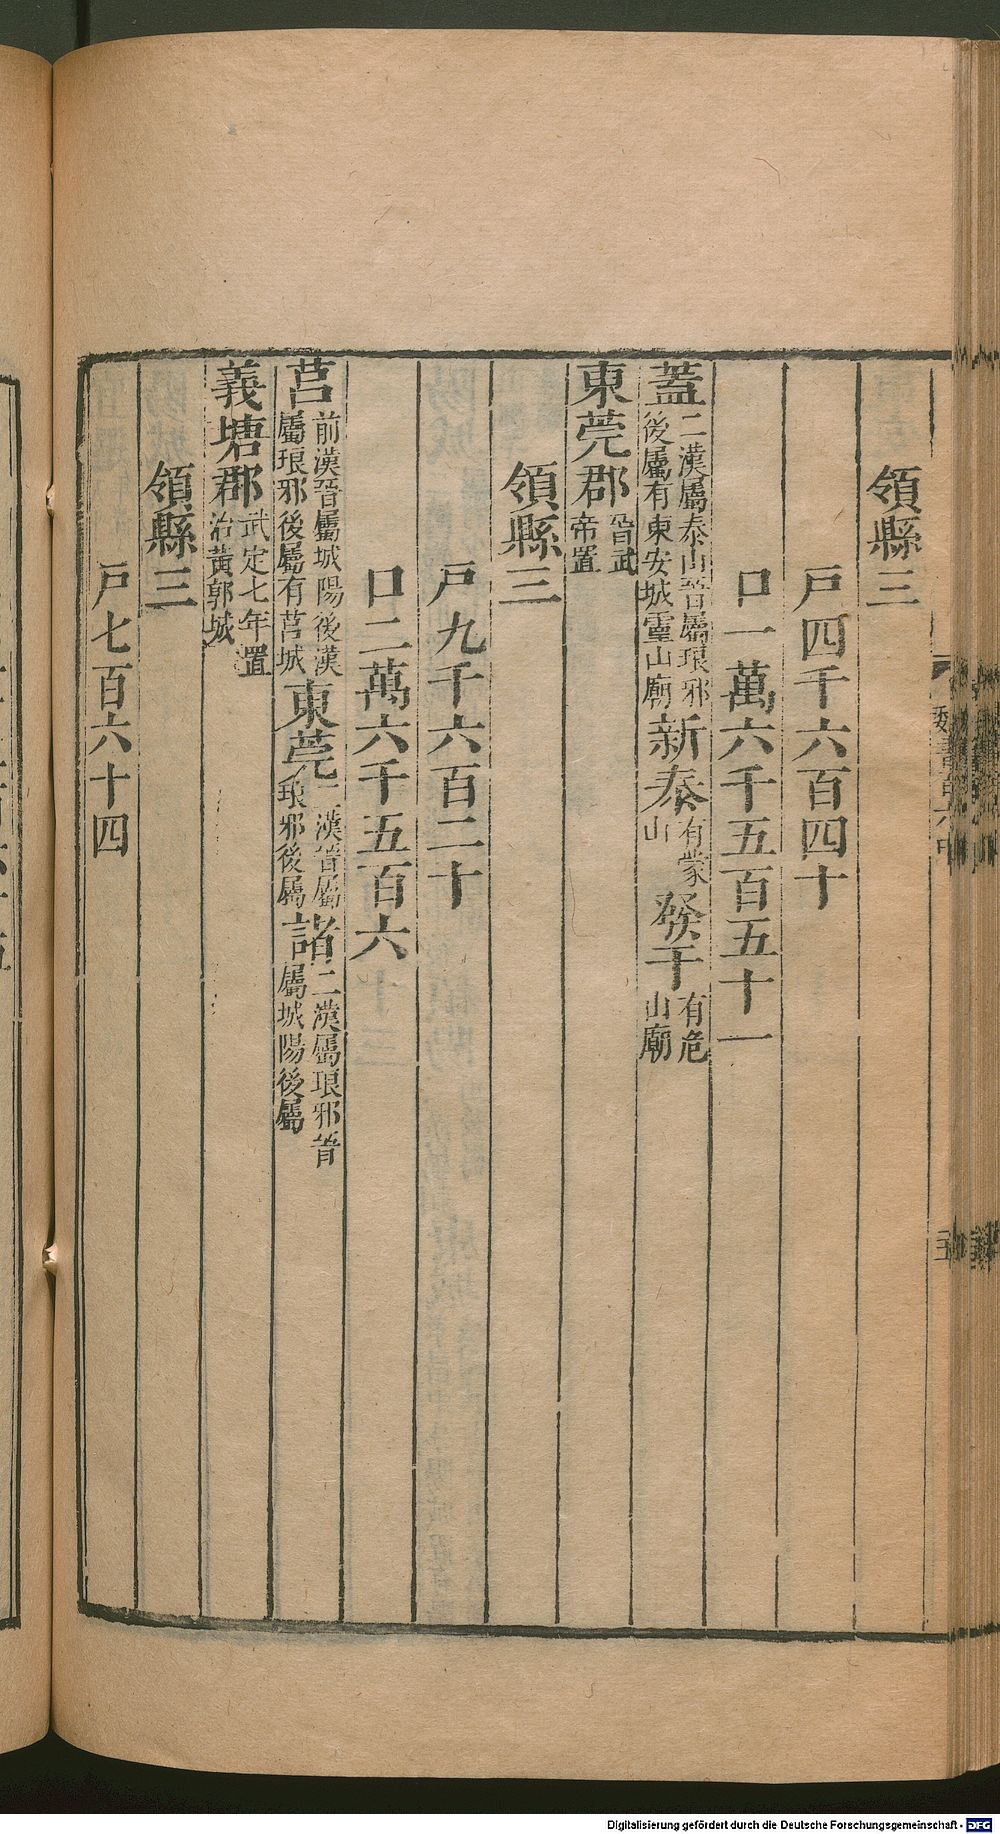 領縣三
戸四千六百四十
口一萬六千五百五十一
蓋二漢屬泰山晉屬琅邪後屬有東安城靈山廟新泰有蒙山發干有危山廟
東莞郡晉武帝置
領縣三
戸九千六百二十
口二萬六千五百六
莒前漢晉屬城陽後漢屬琅邪後屬有莒城東莞二漢晉屬琅邪後屬諸二漢屬琅邪晉屬城陽後屬
義塘郡武定七年置治黃郭城
領縣三
戸七百六十四
Digitalisierung gefördert durch die Deutsche Forschungsgemeinschaft - DFG